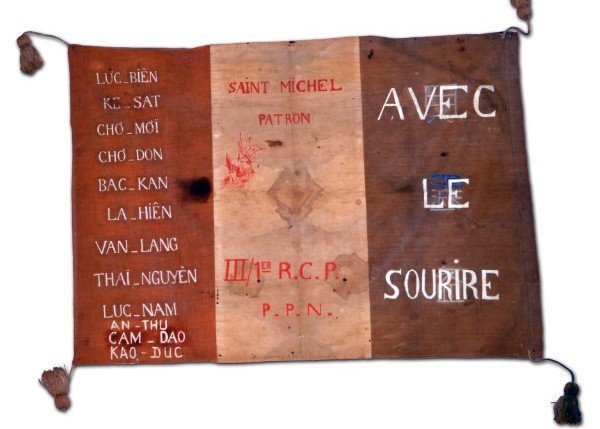 LUC_BIÊN
KE_SAT
CHO_MOÏ
CHO_DON
BAC_KAN
LA_HIÊN
VAN_LANG
THAÏ_NGUYÊN
LUC_NAM
AN-THU
CAM_DAO
KAO-DUC
SAINT MICHEL
PATRON
III/1ER R.C.P.
P.P.N.
AVEC
LE
SOURIRE